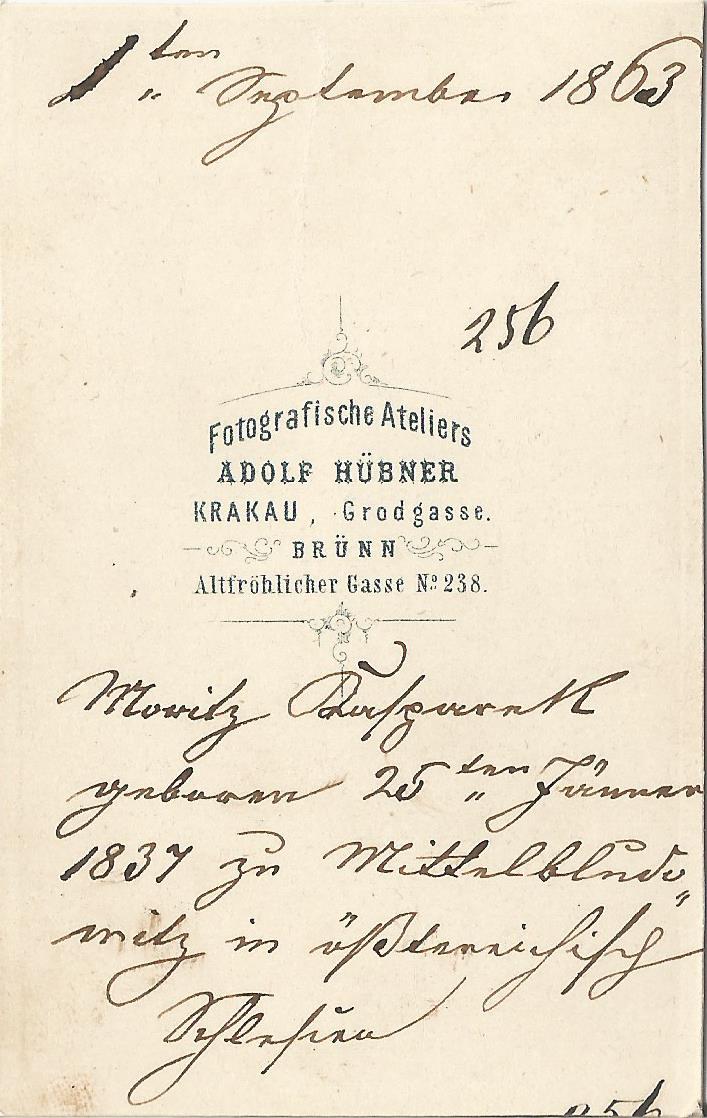 1ten September 1863
256
Fotografische Ateliers
ADOLF HÜBNER
KRAKAU, Grodgasse.
BRÜNN
Altfröhlicher Gasse No 238.
Moritz Kasparek
geboren 25ten Jänner
1837 zu Mittelbludo„
witz in ößtereichisch
Schlesien
256